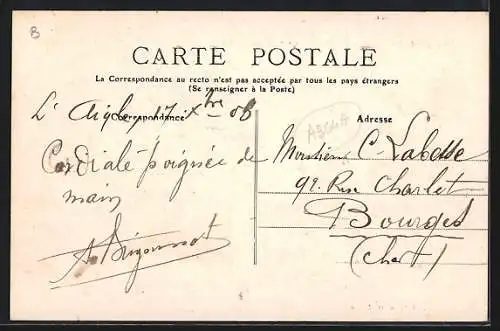 B
CARTE POSTALE
La Correspondance au recto n'est pas acceptée par tous les pays étrangers
(Se renseigner à la Poste)
Correspondance
L'Aigle, 17 Xbre 06
Cordiale poignée de
main
Adresse
Monsieur C. Labesse
92. Rue Charlet
Bourges
(Cher)